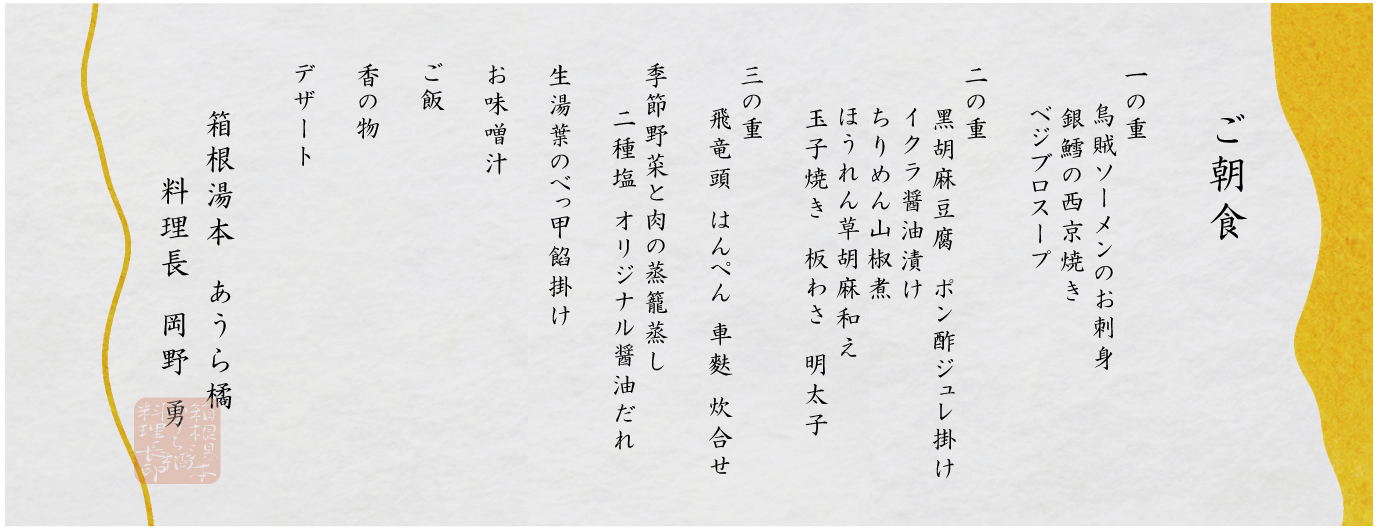 ご朝食
一の重
烏賊ソーメンのお刺身
銀鱈の西京焼き
ベジブロスープ
二の重
黒胡麻豆腐　ポン酢ジュレ掛け
イクラ醤油漬け
ちりめん山椒煮
ほうれん草胡麻和え
玉子焼き　板わさ　明太子
三の重
飛竜頭　はんぺん　車麩　炊合せ
季節野菜と肉の蒸籠蒸し
二種塩　オリジナル醤油だれ
生湯葉のべっ甲餡掛け
お味噌汁
ご飯
香の物
デザート
箱根湯本　あうら橘
料理長　岡野　勇
料理長印